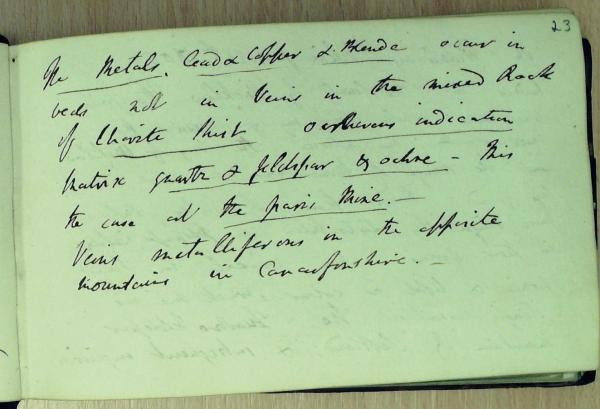 23
The Metals. Lead & Copper & Blende occur in
beds not in Veins in the mixed Rock
of Chlorite Shist indication
Matrix quartz & feldspar & ochre - This
the case at the paris Mine. -
Veins metalliferous in the opposite
mountains in Carnarfonshire. -